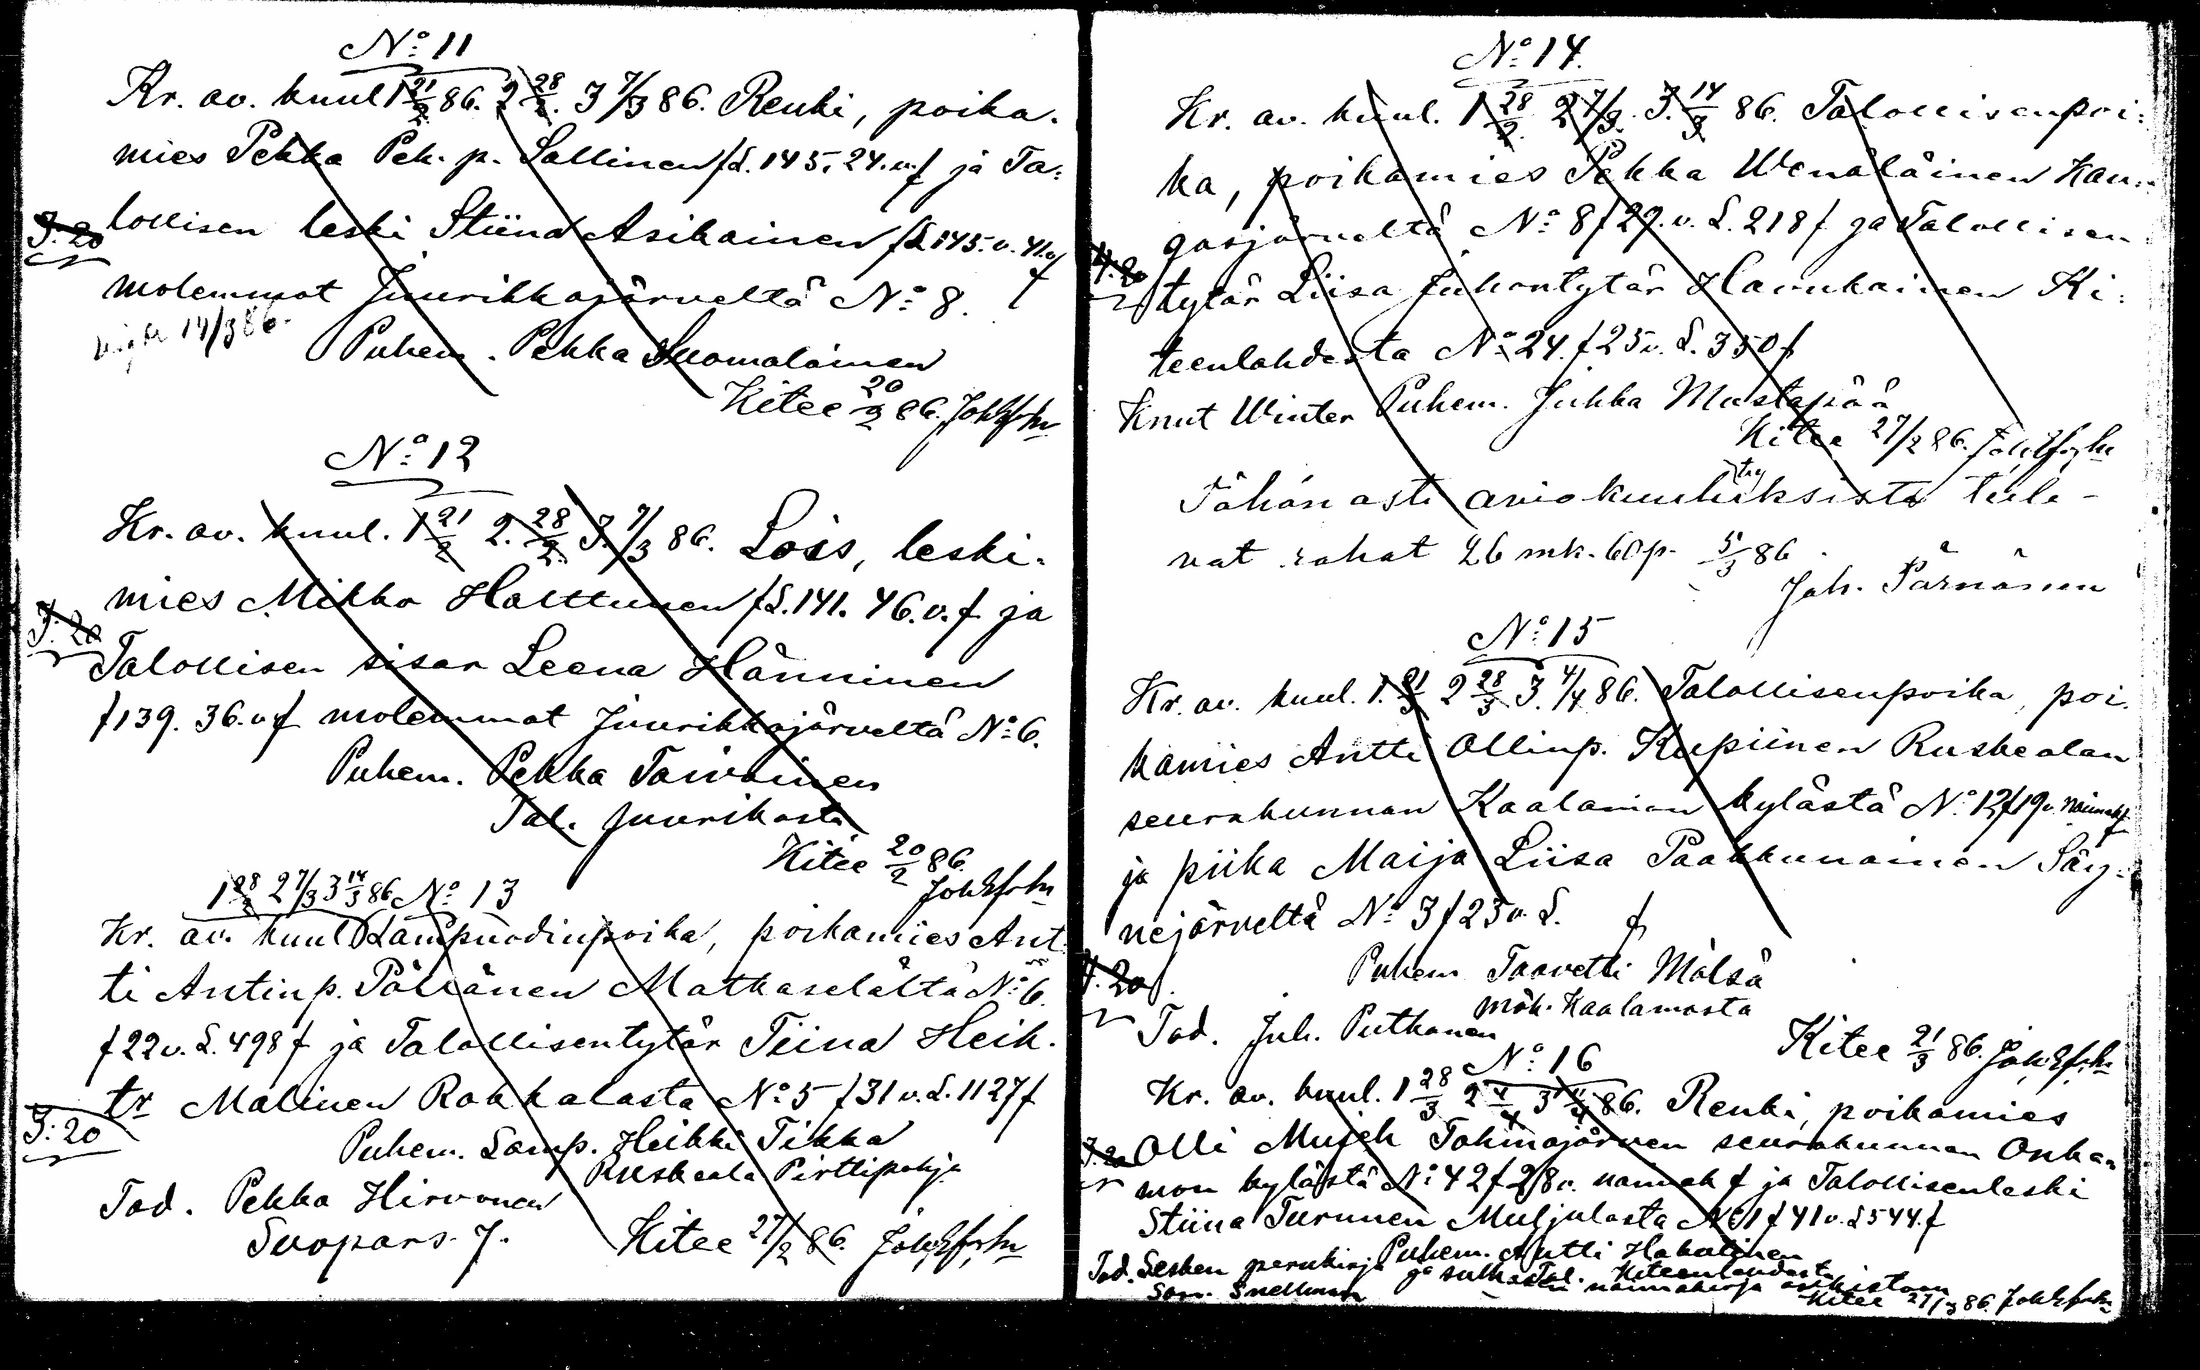 No 11
Kr. av. kuul 1 21/2 86. 2 28/2. 3 7/3 86. Renki, poika-
mies Pekka Pek. p. Sallinen /S. 145. 24. v./ ja Ta-
lollisen leski Stiina Asikainen /S. 145. v. 41./
3:20
molemmat Juurikkajärveltä No 8.
14/3 86.
Puhem. Pekka Suomalainen
Kitee 20/2 86.
No 12
Kr. av. kuul. 1 21/2 2. 28/2 3. 7/3 86. Lois, leski-
mies Mikko Halttunen /S. 141. 46. v./ ja
3:20
Talollisen sisar Leena Hänninen
/139. 36. v/ molemmat Juurikkajärveltä No 6.
Puhem. Pekka Toivainen
Tal. Juurikasta
Kitee 20/2 86.
1 28/2 2 7/3 3 14/3 86 No 13
Kr. av. kuul Lampuodinpoika, poikamies Ant-
ti Antinp. Matkaselältä No 6.
/22 v. S. 498/ ja Talollisentytär Tiina Heik.
tr Malinen Rokkalasta No 5 /31 v. S. 1127/
3:20
Puhem. Lamp. Heikki Tikka
Ruskeala Pirttipohja
Tod. Pekka Hirvonen
Kitee 27/2 86.
No 14.
Kr. av. kuul. 1 28/2. 2 7/3. 3. 14/3 86. Talollisenpoi-
ka, poikamies Pekka Wenäläinen Kan-
gasjärveltä No 8 /29. v. S. 218/ ja Talollisen
tytär Liisa Juhontytär Havukainen Ki-
teenlahdesta No 24. /25 v. S. 350/
Knut Winter Puhem. Jukka Mustapää
Kitee 27/2 86.
Tähän asti aviokuulutuksista tule-
vat rahat 26 mk. 60 p. 5/3 86.
Joh. Pärnänen
No 15
Kr. av. kuul. 1. 21/3 2 28/3 3. 4/4 86. Talollisenpoika, poi-
kamies Antti Ollinp. Kupiinen Ruskealan
seurakunnan Kaalamon kylästä No 12 /19 v.
ja piika Maija Liisa Paakkunainen Säy-
nejärveltä No 3 /23 v. S. /
Puhem Taavetti Mölsä
3:20
mäk. Kaalamosta
Tod. Juh. Puthonen
Kitee 21/3 86.
No 16
Kr. av. kuul. 1 28/3 2 4/4 3 86. Renki, poikamies
Olli Tohmajärven seurakunnan Onka-
mon kylästä No 42 /28 v. / ja Talollisenleski
Stiina Turunen Muljulasta No 1 /41 v. S 544./
Puhem. Antti Hakulinen
Tal. Kiteenlahdesta
Tod. Lesken perukirja ja
Sam. Snellman
Kitee 27/3 86.